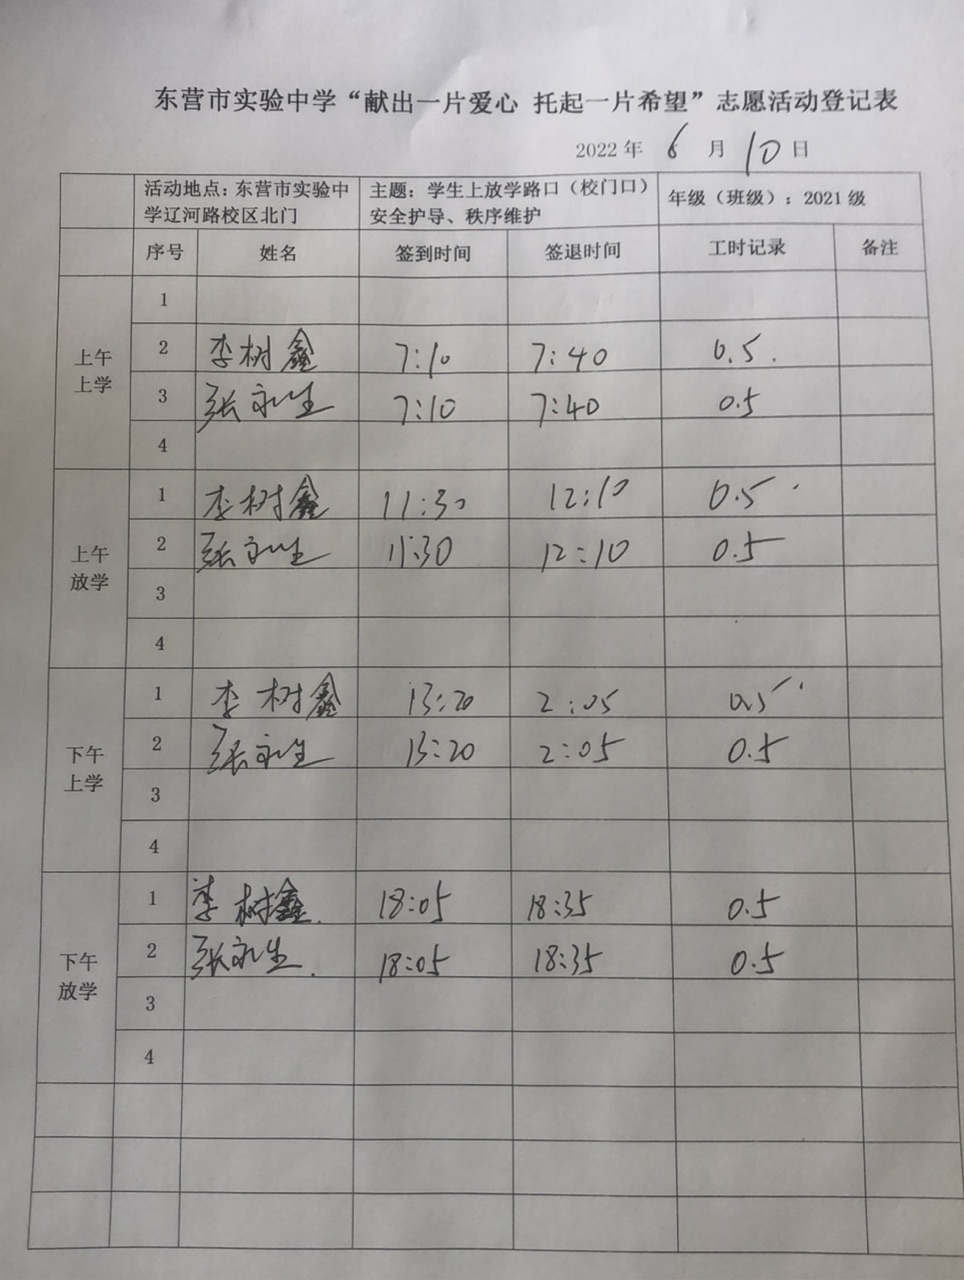 东营市实验中学“献出一片爱心 托起一片希望”志愿活动登记表
2022年 6 月 10 日
活动地点：东营市实验中学辽河路校区北门 主题：学生上放学路口（校门口）安全护导、秩序维护 年级（班级）：2021级
序号 姓名 签到时间 签退时间 工时记录 备注
上午上学
1
2 李树鑫 7:10 7:40 0.5.
3 张永生 7:10 7:40 0.5
4
上午放学
1 李树鑫 11:30 12:10 0.5
2 张永生 11:30 12:10 0.5
3
4
下午上学
1 李树鑫 13:20 2:05 0.5
2 张永生 13:20 2:05 0.5
3
4
下午放学
1 李树鑫. 18:05 18:35 0.5
2 张永生. 18:05 18:35 0.5
3
4